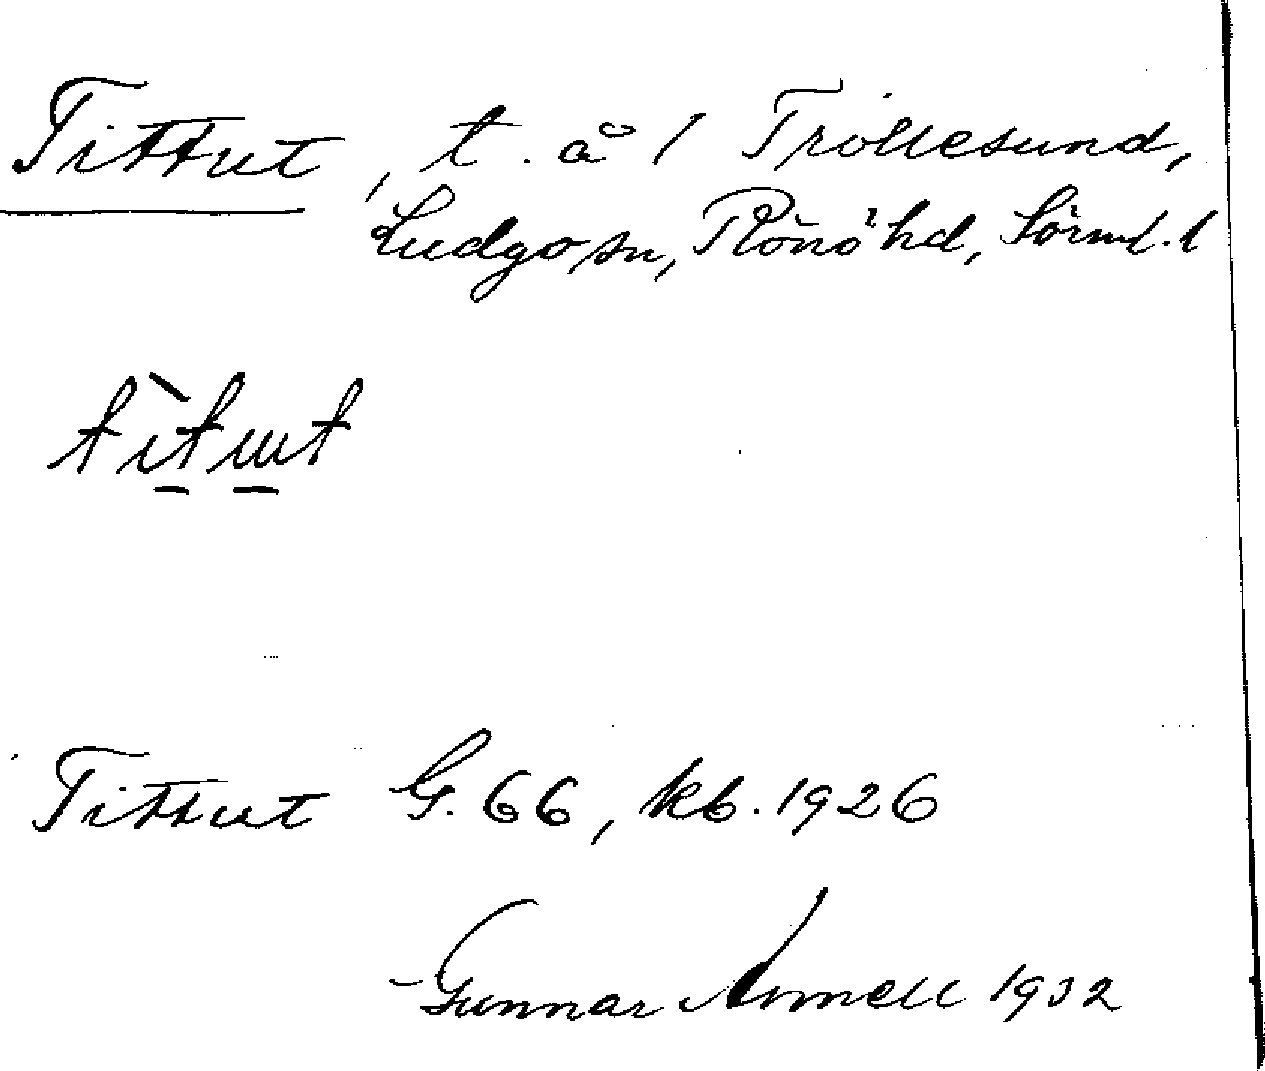 Tittut, t. å 1 Trollesund,
Ludgo sn, Rönö hd, Sörml. l
Tittut G. 66, kb. 1926
Gunnar 1932